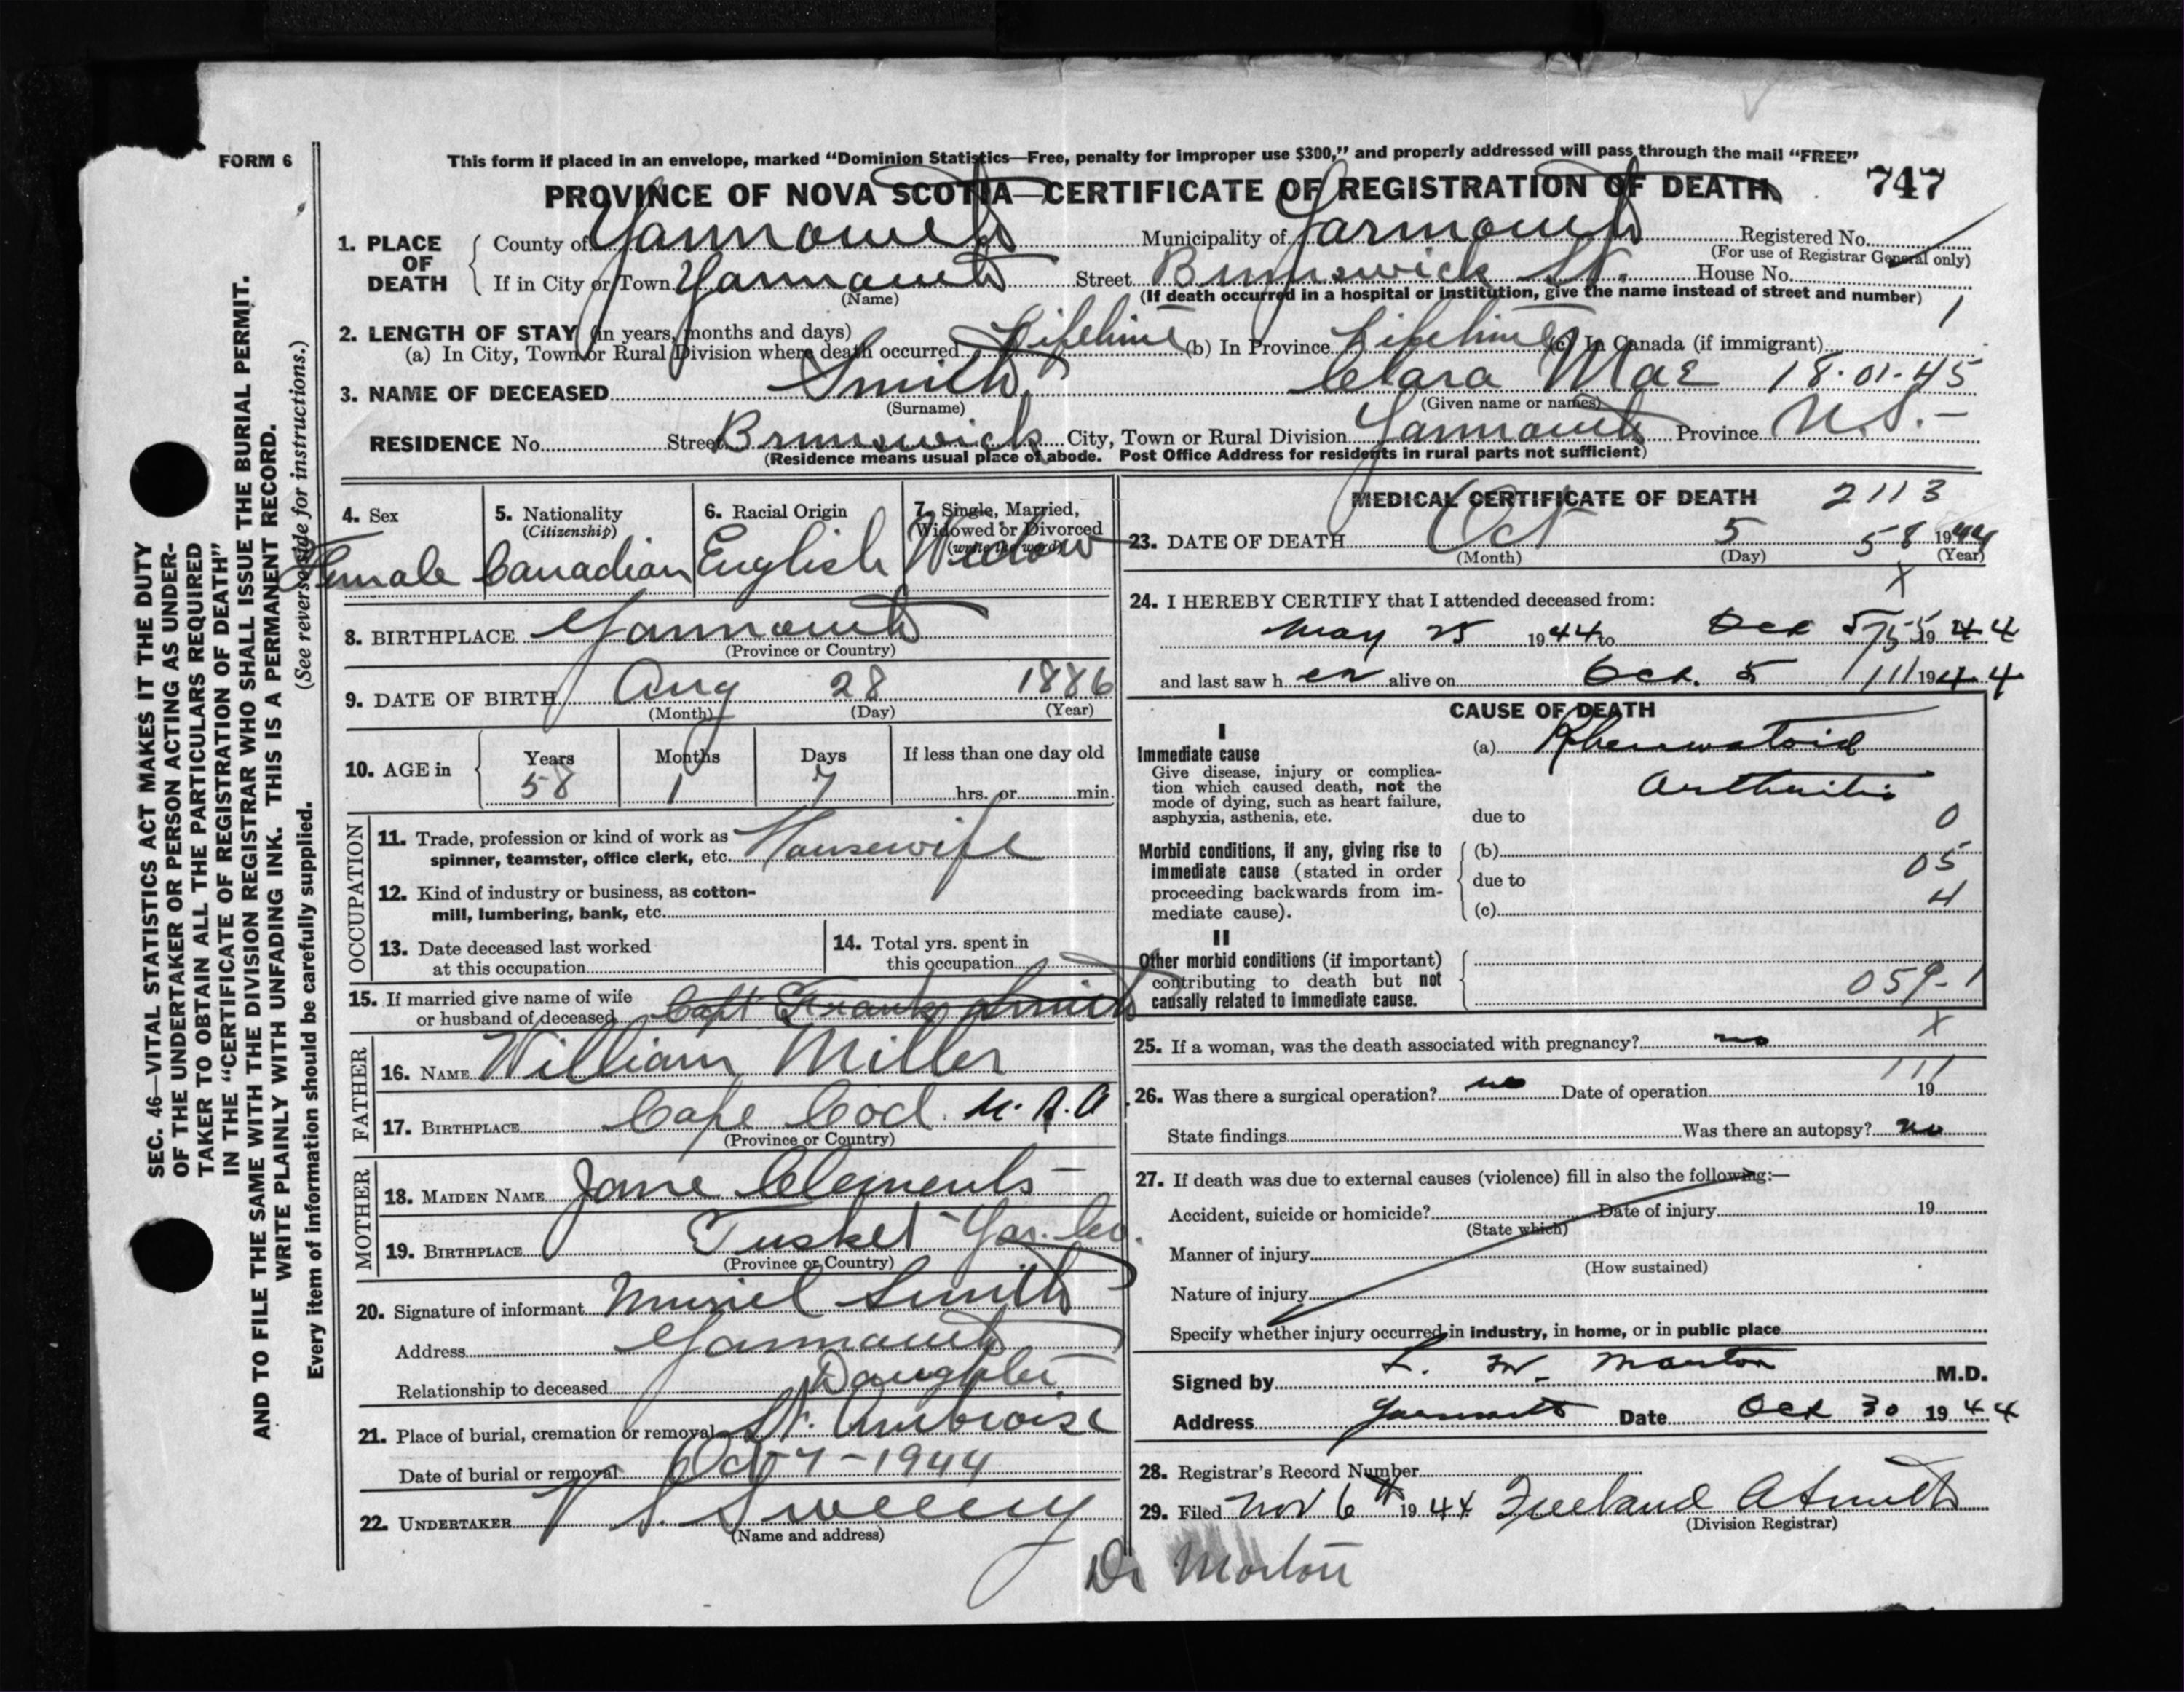 FORM 6
This form if placed in an envelope, marked "Dominion Statistics—Free, penalty for improper use $300," and properly addressed will pass through the mail "FREE"
PROVINCE OF NOVA SCOTIA—CERTIFICATE OF REGISTRATION OF DEATH 747
1. PLACE OF DEATH County of Yarmouth Municipality of Yarmouth Registered No.
(For use of Registrar General only)
If in City or Town Yarmouth Street Brunswick St. House No.
(Name) (If death occurred in a hospital or institution, give the name instead of street and number) 1
2. LENGTH OF STAY (in years, months and days)
(a) In City, Town or Rural Division where death occurred Lifetime (b) In Province Lifetime (c) In Canada (if immigrant)
3. NAME OF DECEASED Smith Clara Mae 18-01-45
(Surname) (Given name or names)
RESIDENCE No. Street Brunswick City, Town or Rural Division Yarmouth Province N.S.-
(Residence means usual place of abode. Post Office Address for residents in rural parts not sufficient)
SEC. 46—VITAL STATISTICS ACT MAKES IT THE DUTY
OF THE UNDERTAKER OR PERSON ACTING AS UNDER-
TAKER TO OBTAIN ALL THE PARTICULARS REQUIRED
IN THE "CERTIFICATE OF REGISTRATION OF DEATH"
AND TO FILE THE SAME WITH THE DIVISION REGISTRAR WHO SHALL ISSUE THE BURIAL PERMIT.
WRITE PLAINLY WITH UNFADING INK. THIS IS A PERMANENT RECORD.
Every item of information should be carefully supplied. (See reverse side for instructions.)
4. Sex 5. Nationality (Citizenship) 6. Racial Origin 7. Single, Married, Widowed or Divorced (write the word)
Female Canadian English Widow
8. BIRTHPLACE Yarmouth
(Province or Country)
9. DATE OF BIRTH Aug 28 1886
(Month) (Day) (Year)
10. AGE in Years Months Days If less than one day old
58 1 7 hrs. or min.
OCCUPATION
11. Trade, profession or kind of work as
spinner, teamster, office clerk, etc. Housewife
12. Kind of industry or business, as cotton-
mill, lumbering, bank, etc.
13. Date deceased last worked
at this occupation
14. Total yrs. spent in
this occupation
15. If married give name of wife
or husband of deceased Capt Frank Smith
FATHER
16. NAME William Miller
17. BIRTHPLACE Cape Cod. U.S.A
(Province or Country)
MOTHER
18. MAIDEN NAME Jane Clements
19. BIRTHPLACE Tusket Yar. Co.
(Province or Country)
20. Signature of informant Muriel Smith
Address Yarmouth
Relationship to deceased Daughter
21. Place of burial, cremation or removal St. Ambroise
Date of burial or removal Oct 7-1944
22. UNDERTAKER V. S. Sweeny
(Name and address)
MEDICAL CERTIFICATE OF DEATH 2113
23. DATE OF DEATH Oct 5 58 1944
(Month) (Day) (Year)
X
24. I HEREBY CERTIFY that I attended deceased from:
May 25 1944 to Oct 5 1944
and last saw h er alive on Oct. 5 1944
CAUSE OF DEATH
I
Immediate cause
Give disease, injury or complica-
tion which caused death, not the
mode of dying, such as heart failure,
asphyxia, asthenia, etc.
(a) Rheumatoid
Arthritis
due to 0
Morbid conditions, if any, giving rise to
immediate cause (stated in order
proceeding backwards from im-
mediate cause).
(b) 05
due to
(c) 4
II
Other morbid conditions (if important)
contributing to death but not
causally related to immediate cause.
059-1
X
25. If a woman, was the death associated with pregnancy? no
26. Was there a surgical operation? no Date of operation 111 19
State findings Was there an autopsy? no
27. If death was due to external causes (violence) fill in also the following:—
Accident, suicide or homicide? Date of injury 19
(State which)
Manner of injury
(How sustained)
Nature of injury
Specify whether injury occurred in industry, in home, or in public place
Signed by L. M. Morton M.D.
Address Yarmouth Date Oct 30 1944
28. Registrar's Record Number
29. Filed Nov 6th 1944 Freeland A Smith
(Division Registrar)
Dr Morton